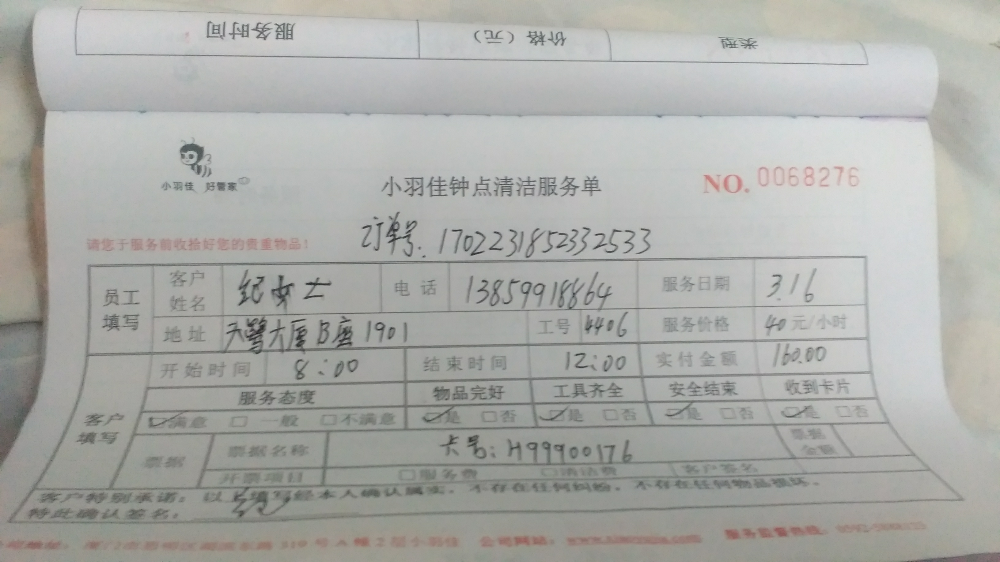 类型 价格（元） 服务时间
小羽佳 好管家
小羽佳钟点清洁服务单 NO. 0068276
请您于服务前收拾好您的贵重物品！ 订单号. 1702231852332533
员工填写 客户姓名 纪女士 电话 13859918864 服务日期 3.16
地址 天鹭大厦B座1901 工号 4406 服务价格 40元/小时
客户填写 开始时间 8：00 结束时间 12：00 实付金额 160.00
服务态度 物品完好 工具齐全 安全结束 收到卡片
☑满意 □一般 □不满意 ☑是 □否 ☑是 □否 ☑是 □否 ☑是 □否
票据 票据名称 卡号：H99900176 票据金额
开票项目 □服务费 □清洁费 客户签名
客户特别承诺：以上填写经本人确认属实，不存在任何纠纷，不存在任何物品损坏。
特此确认签名：
公司网站： 服务监督热线：